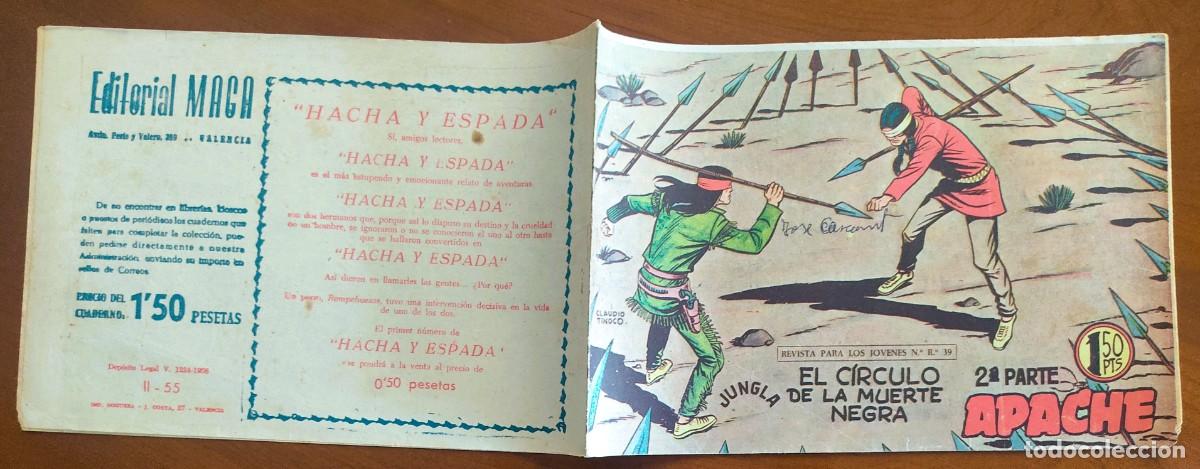 Editorial MAGA
Avda. Peris y Valero, 269 .. VALENCIA
De no encontrar en librerías, kioscos
o puestos de periódicos los cuadernos que
falten para completar la colección, pue-
den pedirse directamente a nuestra
Administración, enviando su importe en
sellos de Correos.
PRECIO DEL
CUADERNO: 1'50 PESETAS
Depósito Legal V. 1224-1958
II - 55
IMP. NOGUERA - J. COSTA, 27 - VALENCIA
"HACHA Y ESPADA"
Sí, amigos lectores,
"HACHA Y ESPADA"
es el más estupendo y emocionante relato de aventuras.
"HACHA Y ESPADA"
son dos hermanos que, porque así lo dispuso su destino y la crueldad
de un hombre, se ignoraron o no se conocieron el uno al otro hasta
que se hallaron convertidos en
"HACHA Y ESPADA"
Así dieron en llamarles las gentes... ¿Por qué?
Un perro, Rompehuesos, tuvo una intervención decisiva en la vida
de uno de los dos.
El primer número de
"HACHA Y ESPADA"
se pondrá a la venta al precio de
0'50 pesetas
CLAUDIO
TINOCO.
REVISTA PARA LOS JOVENES N.º R.º 39
JUNGLA
EL CÍRCULO
DE LA MUERTE
NEGRA
1'50
PTS
2ª PARTE
APACHE
todocoleccion